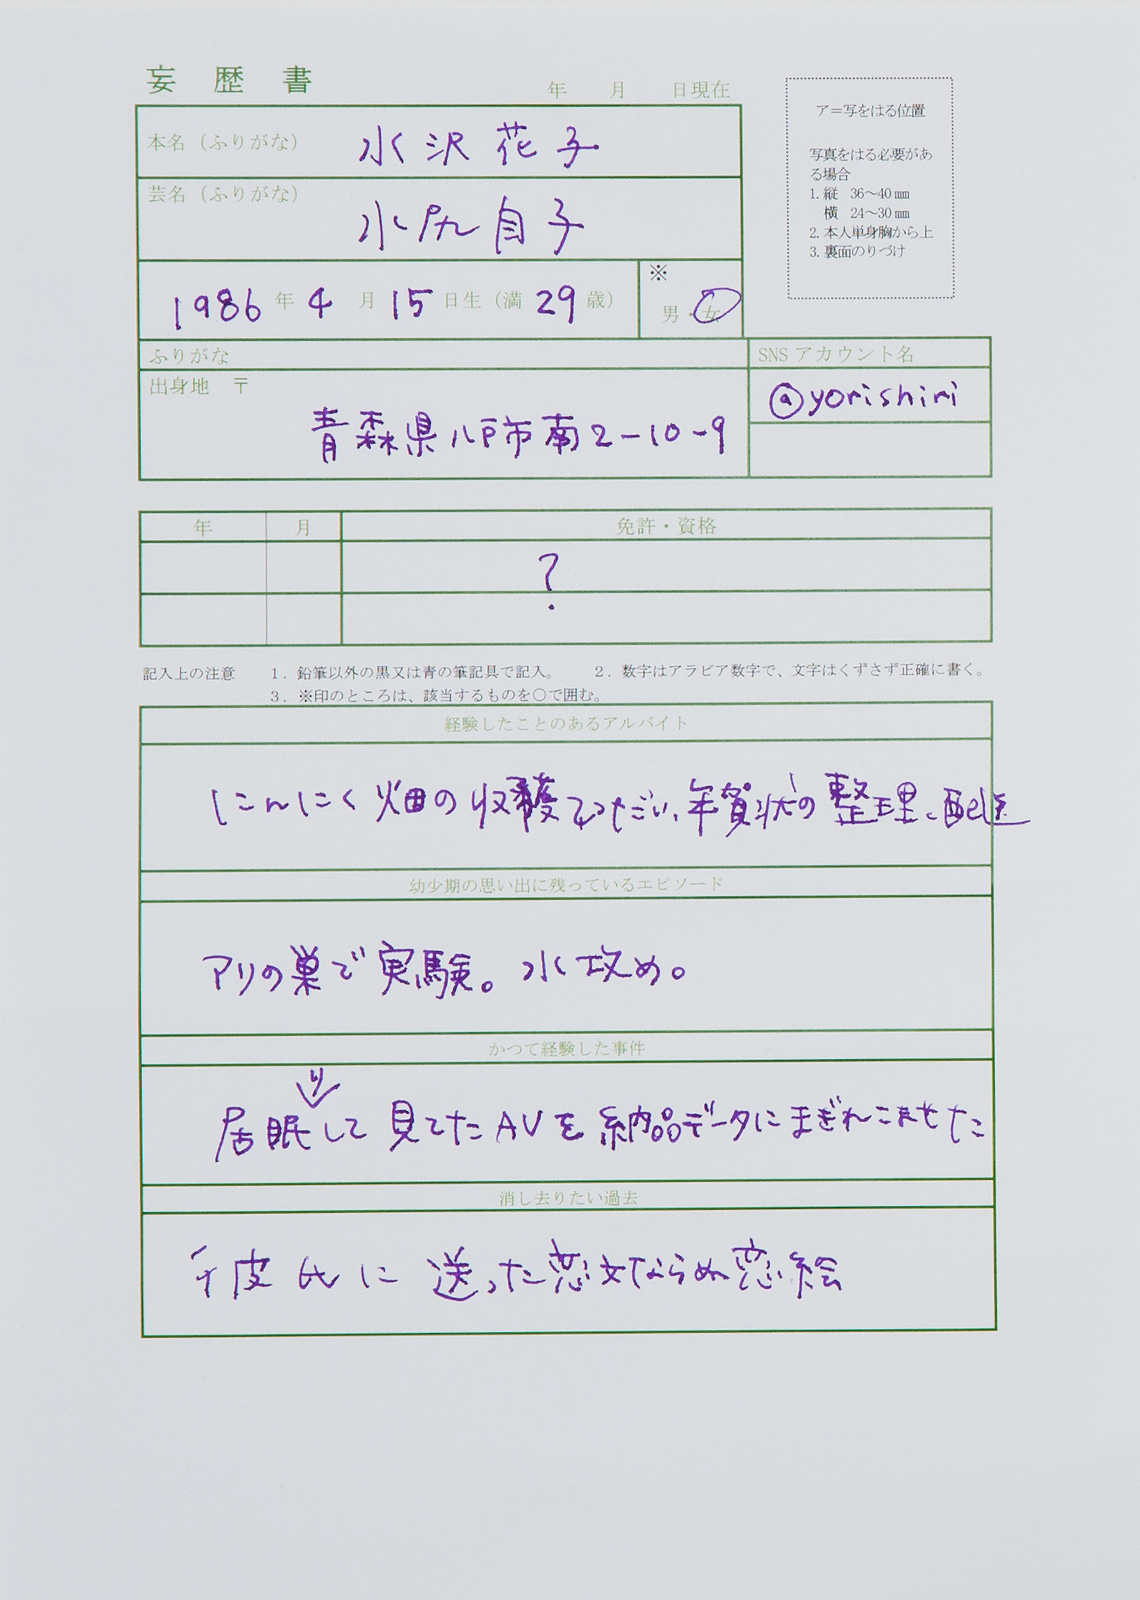 妄歴書
年 月 日現在
ア=写をはる位置
写真をはる必要があ
る場合
1. 縦 36〜40㎜
横 24〜30㎜
2. 本人単身胸から上
3. 裏面のりづけ
本名（ふりがな）
水沢花子
芸名（ふりがな）
水尻自子
1986年4月15日生（満29歳）
※
男・女
ふりがな
出身地 〒
青森県八戸市南2-10-9
SNSアカウント名
@yorishiri
年 月 免許・資格
?
記入上の注意 1. 鉛筆以外の黒又は青の筆記具で記入。 2. 数字はアラビア数字で、文字はくずさず正確に書く。
3. ※印のところは、該当するものを○で囲む。
経験したことのあるアルバイト
にんにく畑の収穫てつだい、年賀状の整理、配達
幼少期の思い出に残っているエピソード
アリの巣で実験。水攻め。
かつて経験した事件
り
居眠して見てたAVを納品データにまぎれこませた
消し去りたい過去
千皮氏に送った恋文ならぬ恋絵